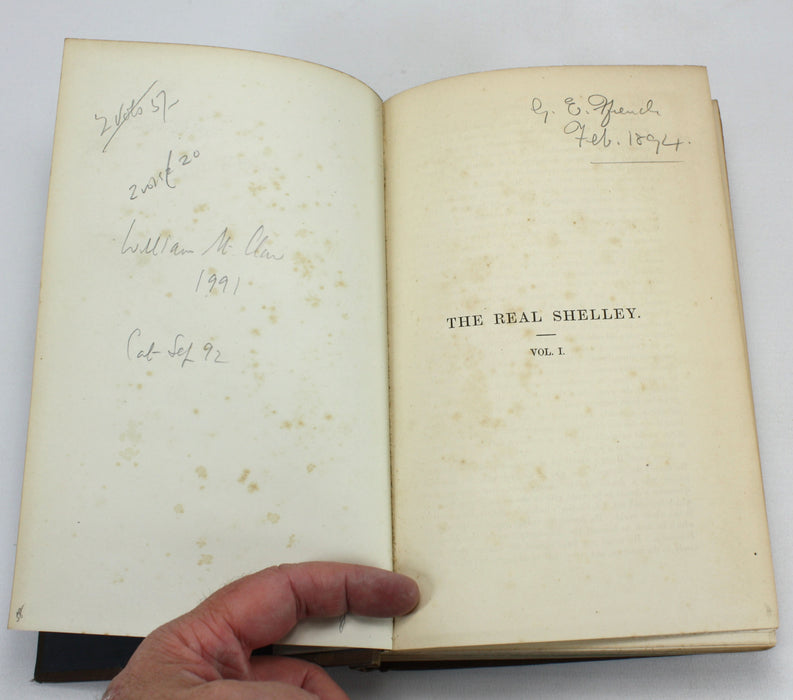 2 Vols 5/-
2 vols £20
William M. Clare
1991
Cat Sep 92
G. E. French
Feb. 1894.
THE REAL SHELLEY.
VOL. I.